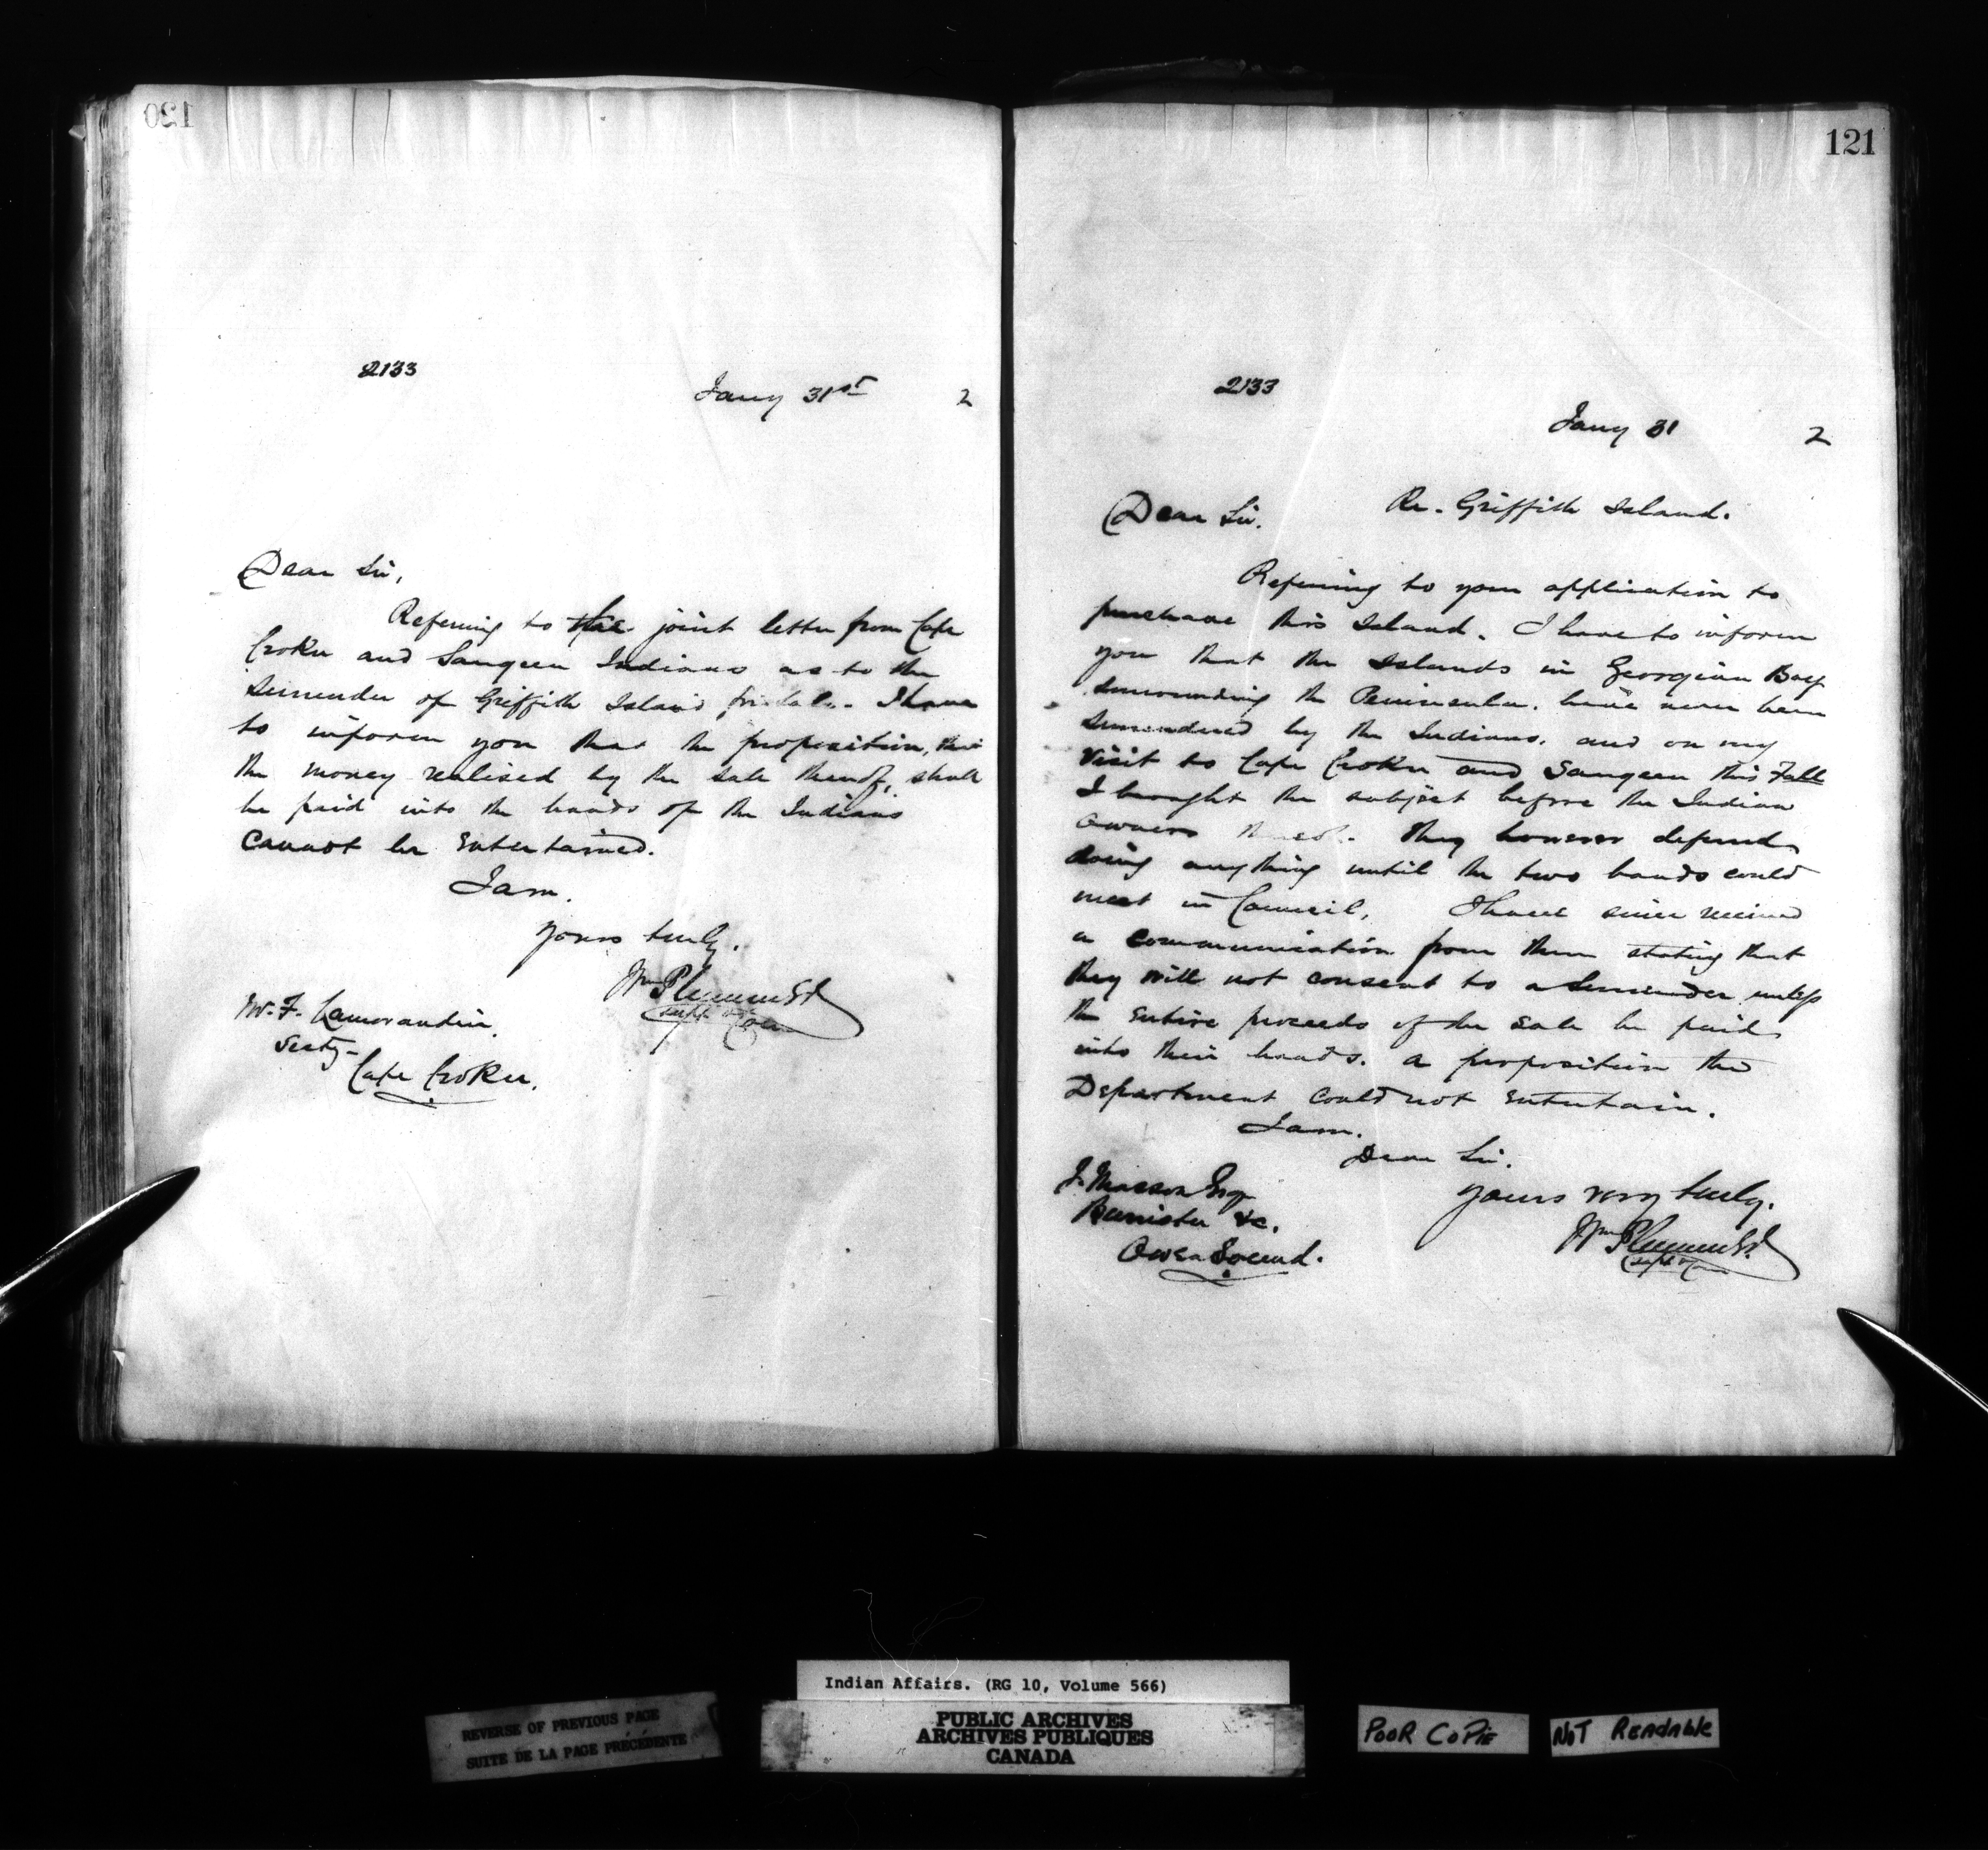 120
2133
Jany 31st 2
Dear Sir,
Referring to the joint letter from Cape
Croker and Saugeen Indians as to the
Surrender of Griffith Island for sale. I have
to inform you that the proposition, that
the money realised by the sale thereof, shall
be paid into the hands of the Indians
cannot be entertained.
I am.
Yours truly.
Wm Plummer
Supt &
Mr. F. Lamorandiere
Secty-
Cape Croker.
121
2133
Jany 31 2
Dear Sir. Re. Griffith Island.
Referring to your application to
purchase this Island. I have to inform
you that the Islands in Georgian Bay
surrounding the Peninsula. have never been
surrendered by the Indians. and on my
visit to Cape Croker and Saugeen this Fall
I brought the subject before the Indian
owners thereof. They however deferred
doing anything until the two bands could
meet in Council, I have since received
a communication from them stating that
they will not consent to a Surrender unless
the entire proceeds of the sale be paid
into their hands. a proposition the
Department could not entertain.
I am.
Dear Sir.
Yours very truly.
Wm Plummer
Supt &
J. Masson Esqr
Barrister &c.
Owen Sound.
Indian Affairs. (RG 10, Volume 566)
REVERSE OF PREVIOUS PAGE
SUITE DE LA PAGE PRÉCÉDENTE
PUBLIC ARCHIVES
ARCHIVES PUBLIQUES
CANADA
POOR COPIE
NOT READABLE